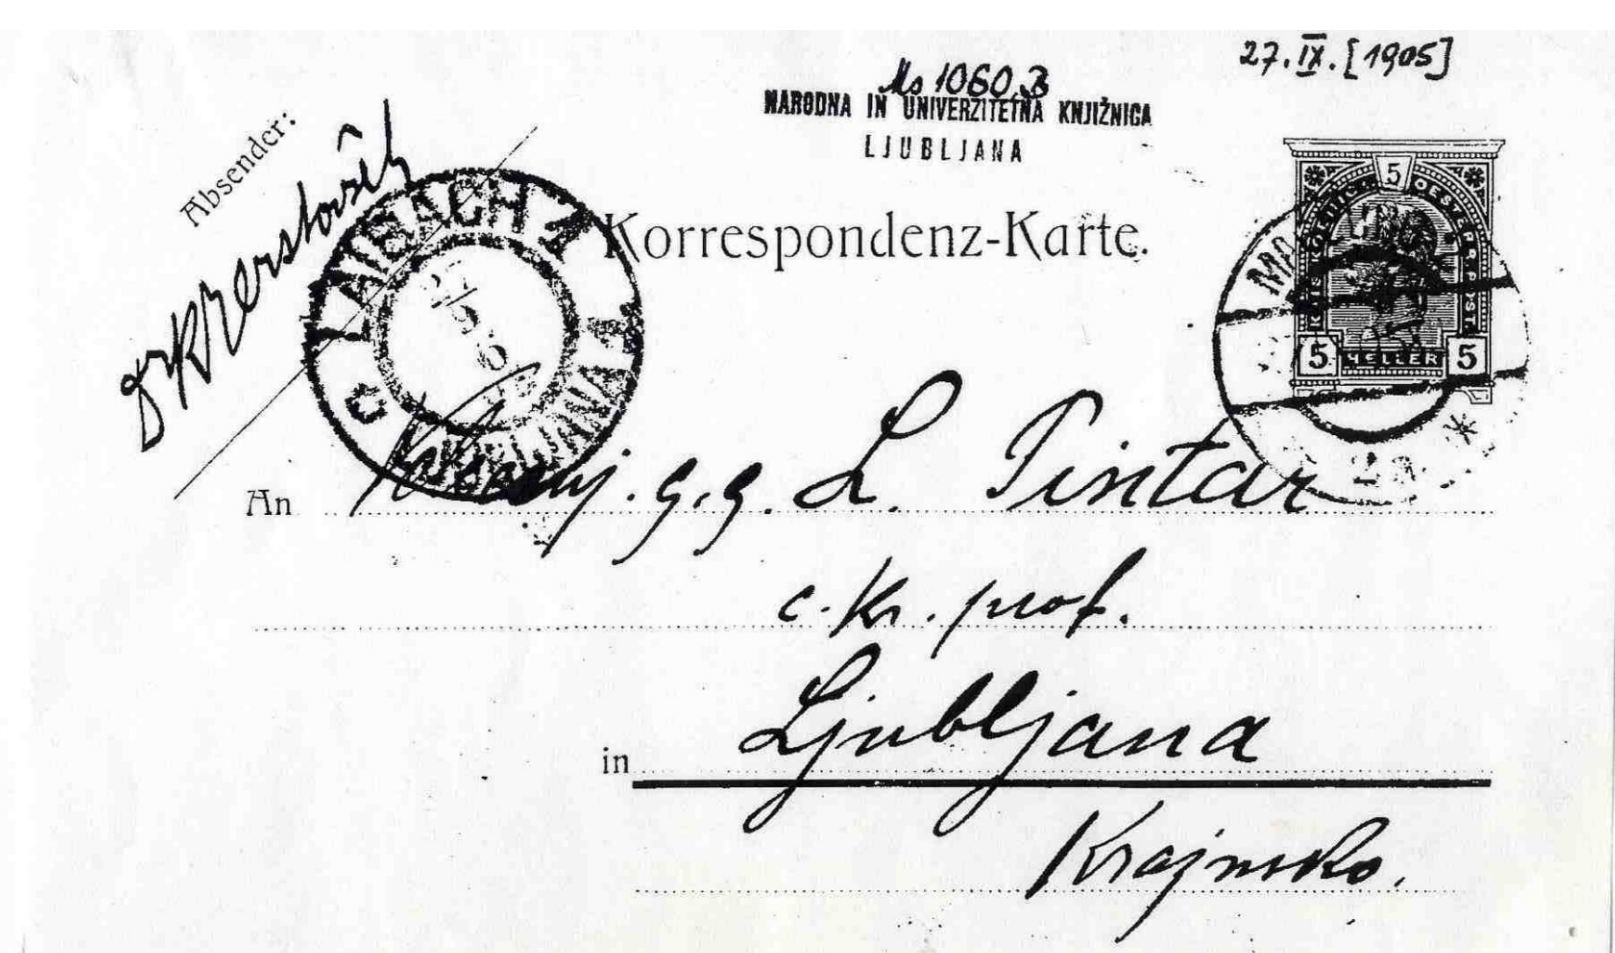 27.IX.[1905]
Ms 1060 B
NARODNA IN UNIVERZITETNA KNJIŽNICA
LJUBLJANA
Absender:
LAIBACH 1
LJUBLJANA 1
Korrespondenz-Karte.
5
5 HELLER 5
An g.g. L. Pintar
c. kr. prof.
in Ljubljana
Krajnsko.